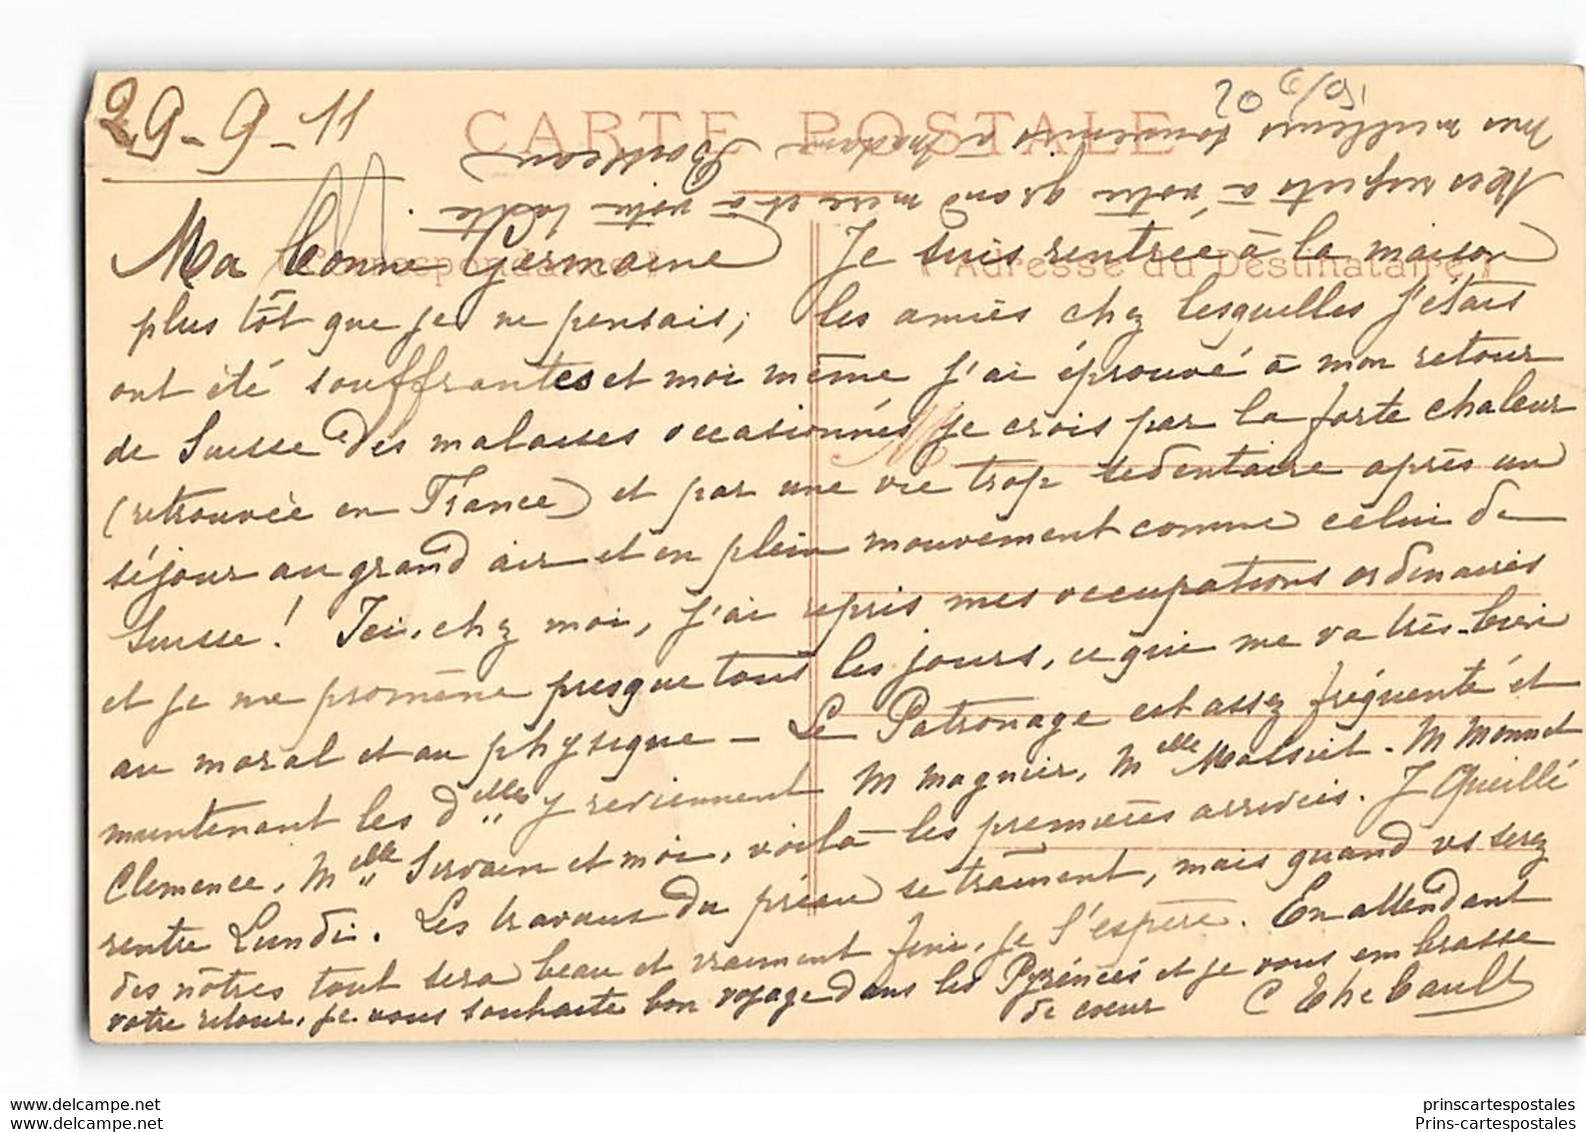 29-9-11
CARTE POSTALE
20
Mes respects à votre grand mère et à votre tante
mes meilleurs souvenirs à Madame
Correspondance
Adresse du Destinataire
Ma bonne Germaine Je suis rentrée à la maison
plus tôt que je ne pensais; les amies chez lesquelles j'étais
ont été souffrantes et moi même j'ai éprouvé à mon retour
de Suisse des malaises occasionnés je crois par la forte chaleur
(retrouvée en France) et par une vie trop sedentaire après un
séjour au grand air et en plein mouvement comme celui de
Suisse! Ici, chez moi, j'ai repris mes occupations ordinaires
et je me promène presque tous les jours, ce qui me va très-bien
au moral et au physique - Le Patronage est assez fréquenté et
maintenant les d^elles y reviennent M Magnier, M^elle Malsiet - M Monnet
Clemence, M^elle Servain et moi, voilà les premières arrivées. J Queillé
rentre Lundi. Les travaux du préau se traînent, mais quand vs serez
des nôtres tout sera beau et vraiment fini, je l'espère. En attendant
votre retour, je vous souhaite bon voyage dans les Pyrénées et je vous embrasse
de cœur C Thebault
prinscartespostales
Prins-cartespostales
prinscartespostales
Prins-cartespostales.com